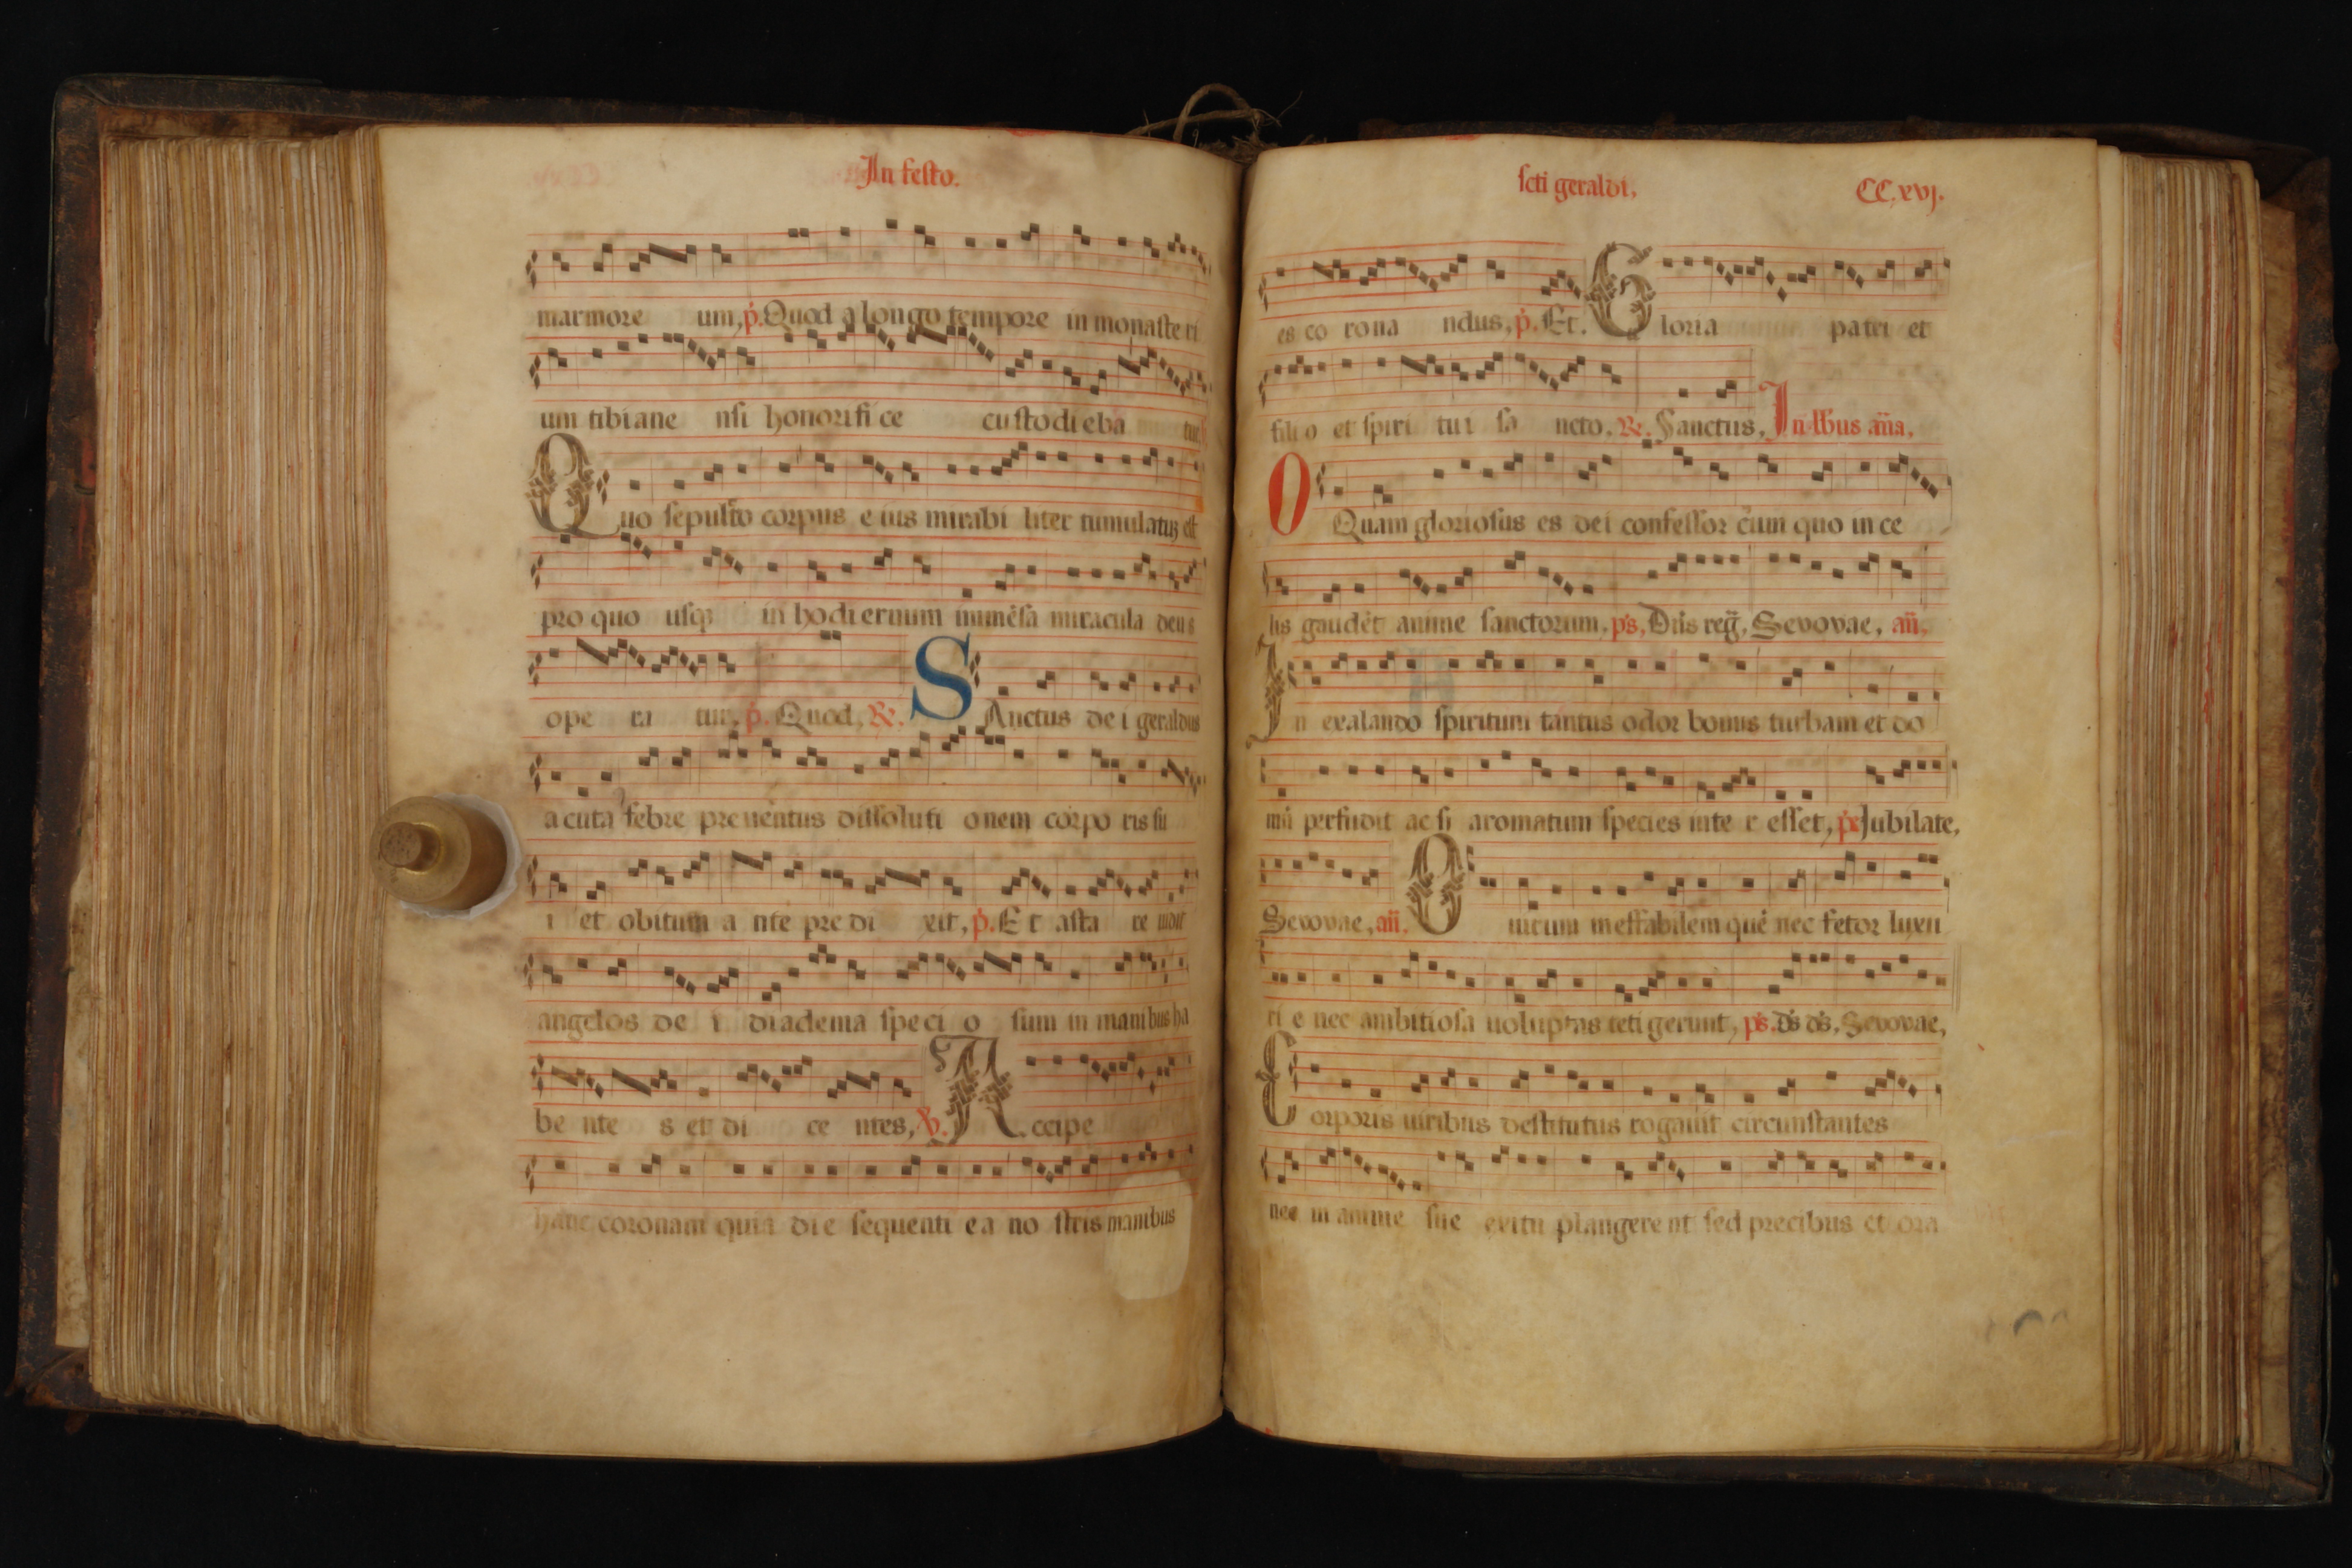 In festo.
marmore um, p. Quod a longo tempore in monasteri
um tibiane nsi honorifi ce custodieba tur.
Quo sepulto corpus eius mirabi liter tumulatus est
pro quo usq in hodiernum imēsa miracula deus
ope ra tur. p. Quod, R. SAnctus dei geraldus
acuta febre preuentus dissoluti onem corpo ris su
i et obitum a nte predi xit, p. Et asta re uidit
angelos de i diadema speci o sum in manibus ha
be nte s et di ce ntes, V. Accipe
hanc coronam quia die sequenti ea no stris manibus
scti geraldi, CC.xvj.
es co rona ndus, p. Et. Gloria patri et
filio et spiri tui sa ncto. R. Sanctus, In lbus ana,
O Quam gloriosus es dei confessor cum quo in ce
lis gaudēt anime sanctorum, ps, Dns reg, Seuouae, an,
In exalando spiritum tantus odor bonus turbam et do
mū perfudit ac si aromatum species inte r esset, ps Jubilate,
Seuouae, an. Uirum ineffabilem quē nec fetor luxu
ri e nec ambitiosa uoluptas tetigerunt, ps. ds ds, Seuouae,
Corporis uiribus destitutus rogauit circunstantes
nec in anime sue exitu plangerent sed precibus et ora